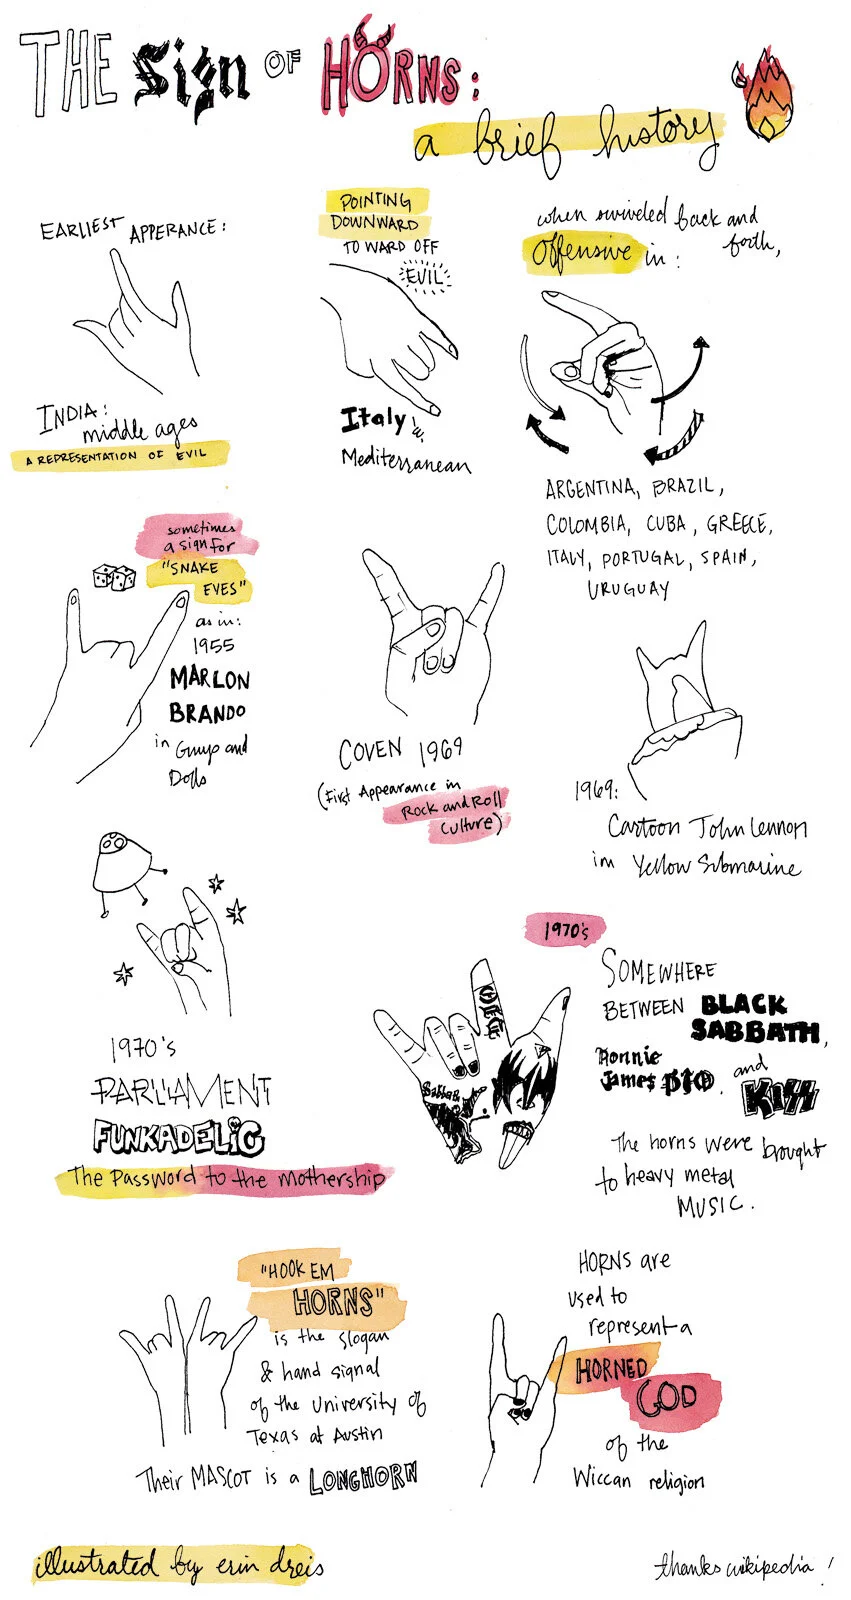 THE Sign OF HORNS:
a brief history
EARLIEST APPERANCE:
INDIA:
middle ages
A REPRESENTATION OF EVIL
POINTING
DOWNWARD
TO WARD OFF
EVIL
Italy &
Mediterranean
when swiveled back and
forth,
Offensive in:
ARGENTINA, BRAZIL,
COLOMBIA, CUBA, GREECE,
ITALY, PORTUGAL, SPAIN,
URUGUAY
sometimes
a sign for
"SNAKE
EYES"
as in:
1955
MARLON
BRANDO
in Guys and
Dolls
COVEN 1969
(First Appearance in
Rock and Roll
Culture)
1969:
Cartoon John Lennon
in Yellow Submarine
1970's
PARLIAMENT
FUNKADELIC
The Password to the Mothership
1970's
SOMEWHERE
BETWEEN BLACK
SABBATH,
Ronnie
James DIO, and
KISS
The horns were brought
to heavy metal
MUSIC.
Sabbath
"HOOK EM
HORNS"
is the slogan
& hand signal
of the University of
Texas at Austin
Their MASCOT is a LONGHORN
HORNS are
used to
represent a
HORNED
GOD
of the
Wiccan religion
illustrated by erin dreis
thanks wikipedia!